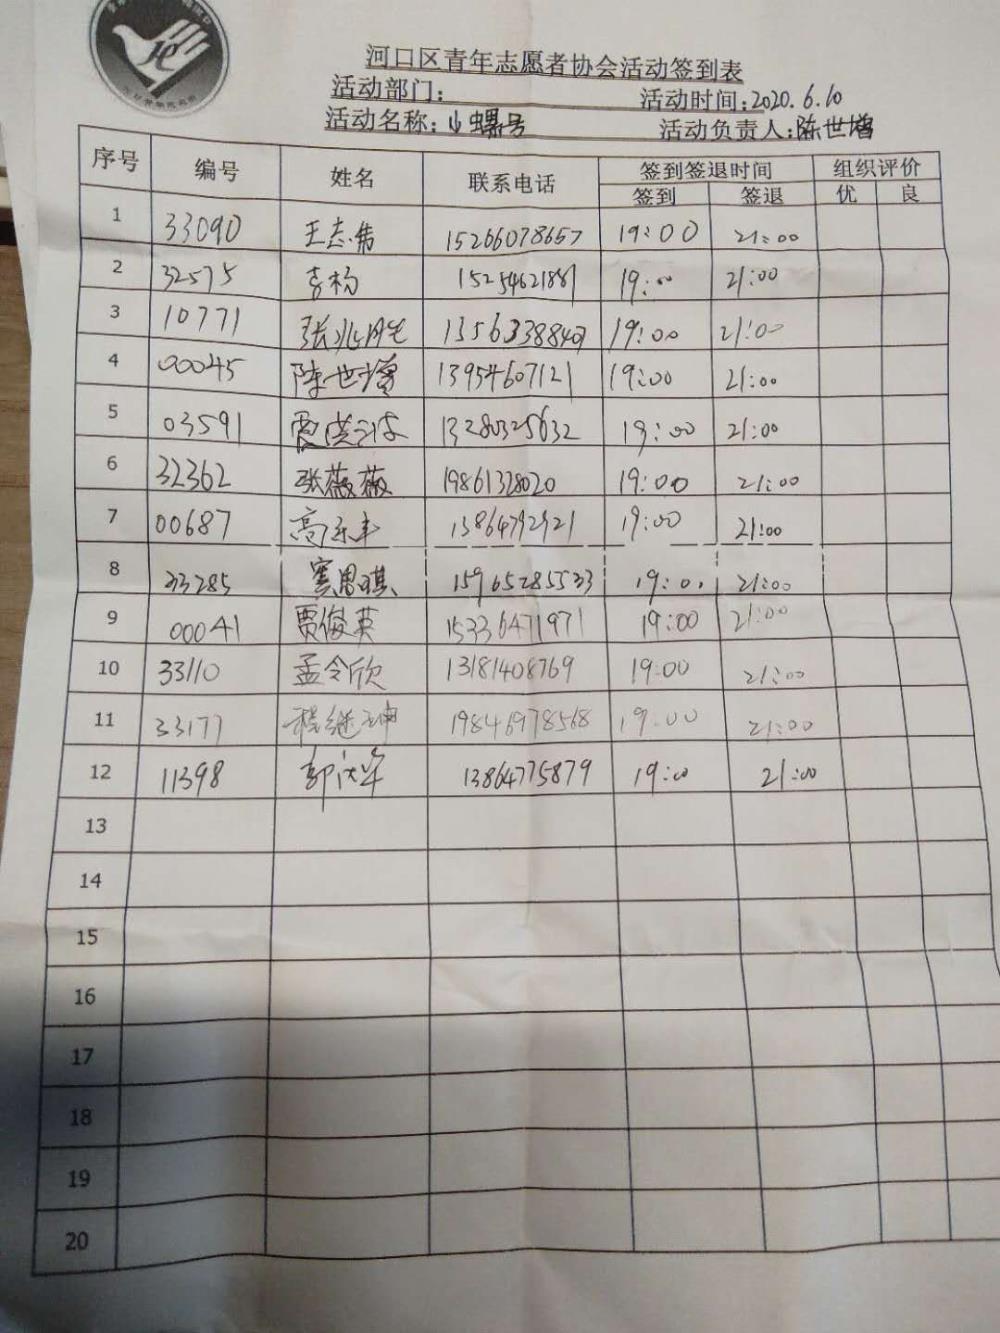 河口区青年志愿者协会活动签到表
活动部门:
活动时间:2020.6.10
活动名称:小螺号
活动负责人:陈世增
序号 编号 姓名 联系电话 签到签退时间 组织评价
签到 签退 优 良
1 33090 王志伟 15266078657 19:00 21:00
2 32575 李杨 15254621881 19:00 21:00
3 10771 张兆 19:00 21:00
4 00045 陈世增 13954607121 19:00 21:00
5 03591 13280325632 19:00 21:00
6 32362 张薇薇 19861328020 19:00 21:00
7 00687 高 13864792921 19:00 21:00
8 33285 思琪 15965285533 19:00 21:00
9 00041 贾俊英 15336471971 19:00 21:00
10 33110 孟令欣 13181408769 19:00 21:00
11 33177 程继坤 19846978568 19:00 21:00
12 11398 郭 13864775879 19:00 21:00
13
14
15
16
17
18
19
20